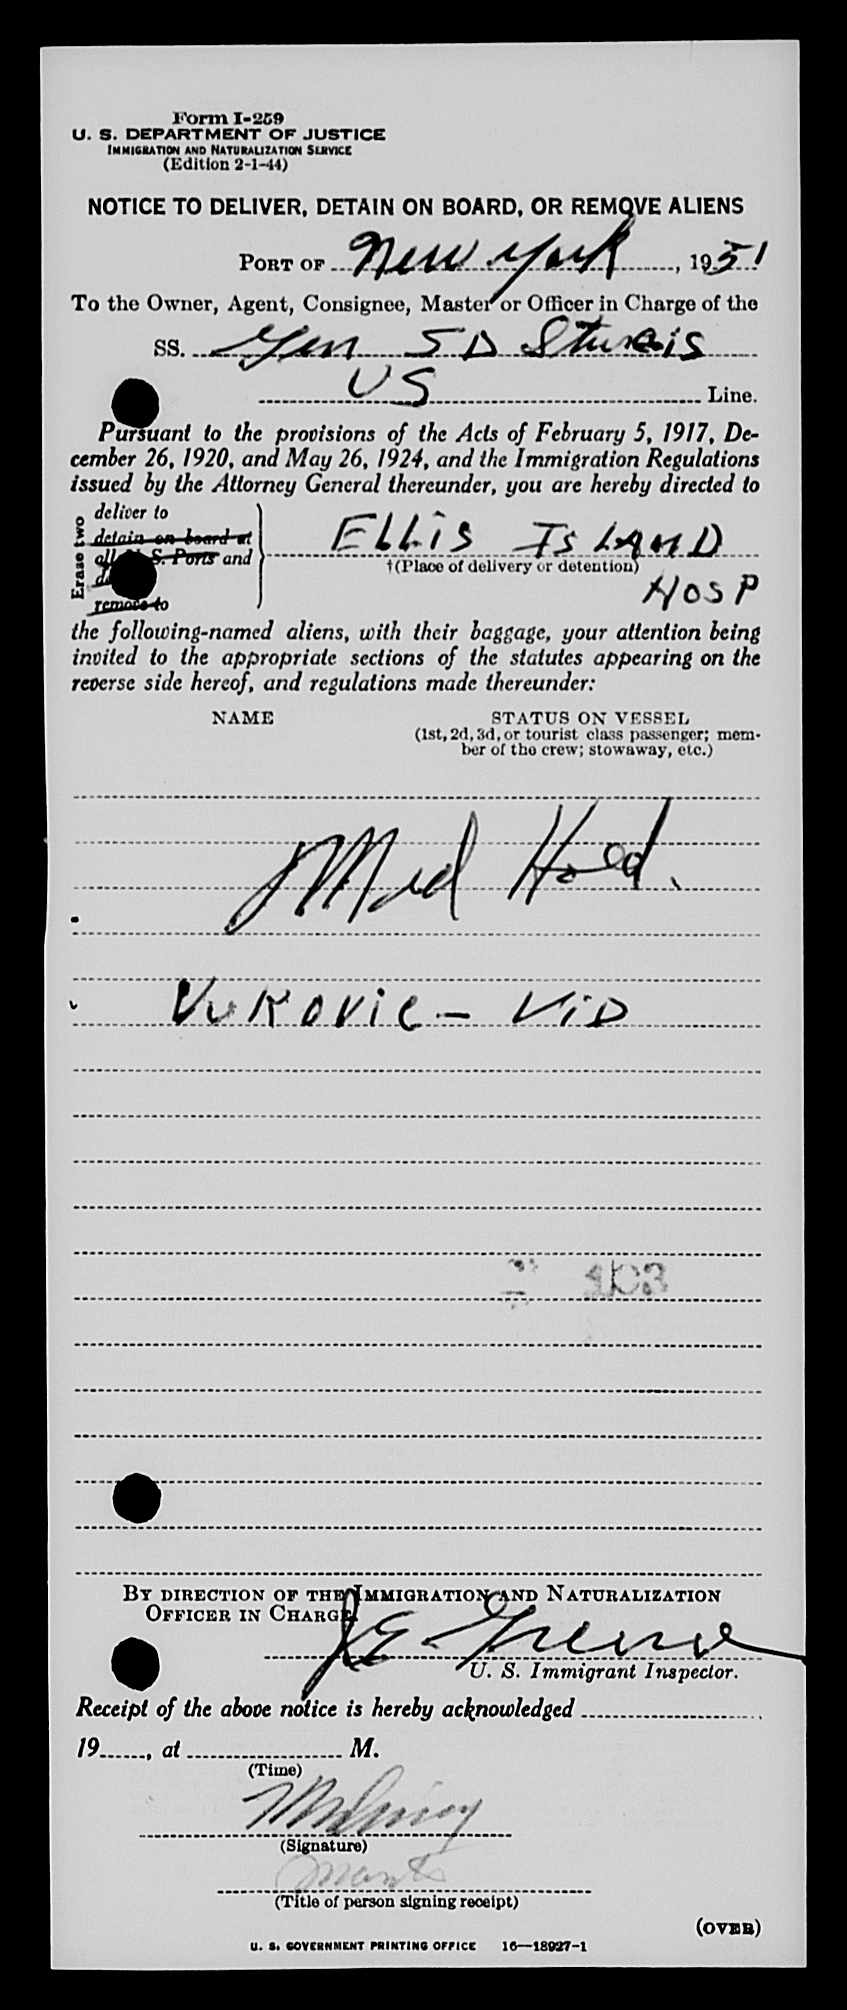 Form I-259
U. S. DEPARTMENT OF JUSTICE
IMMIGRATION AND NATURALIZATION SERVICE
(Edition 2-1-44)
NOTICE TO DELIVER, DETAIN ON BOARD, OR REMOVE ALIENS
PORT OF New York, 1951
To the Owner, Agent, Consignee, Master or Officer in Charge of the
SS. Gen S D Sturgis
US Line.
Pursuant to the provisions of the Acts of February 5, 1917, De-
cember 26, 1920, and May 26, 1924, and the Immigration Regulations
issued by the Attorney General thereunder, you are hereby directed to
Erase two
deliver to
detain on board at
all U. S. Ports and
remove to
ELLIS ISLAND
†(Place of delivery or detention)
HOSP
the following-named aliens, with their baggage, your attention being
invited to the appropriate sections of the statutes appearing on the
reverse side hereof, and regulations made thereunder:
NAME STATUS ON VESSEL
(1st, 2d, 3d, or tourist class passenger; mem-
ber of the crew; stowaway, etc.)
Med Hold.
VUKOVIC - VID
BY DIRECTION OF THE IMMIGRATION AND NATURALIZATION
OFFICER IN CHARGE.
U. S. Immigrant Inspector.
Receipt of the above notice is hereby acknowledged
19......, at M.
(Time)
(Signature)
(Title of person signing receipt)
(OVER)
U. S. GOVERNMENT PRINTING OFFICE 16—18927-1